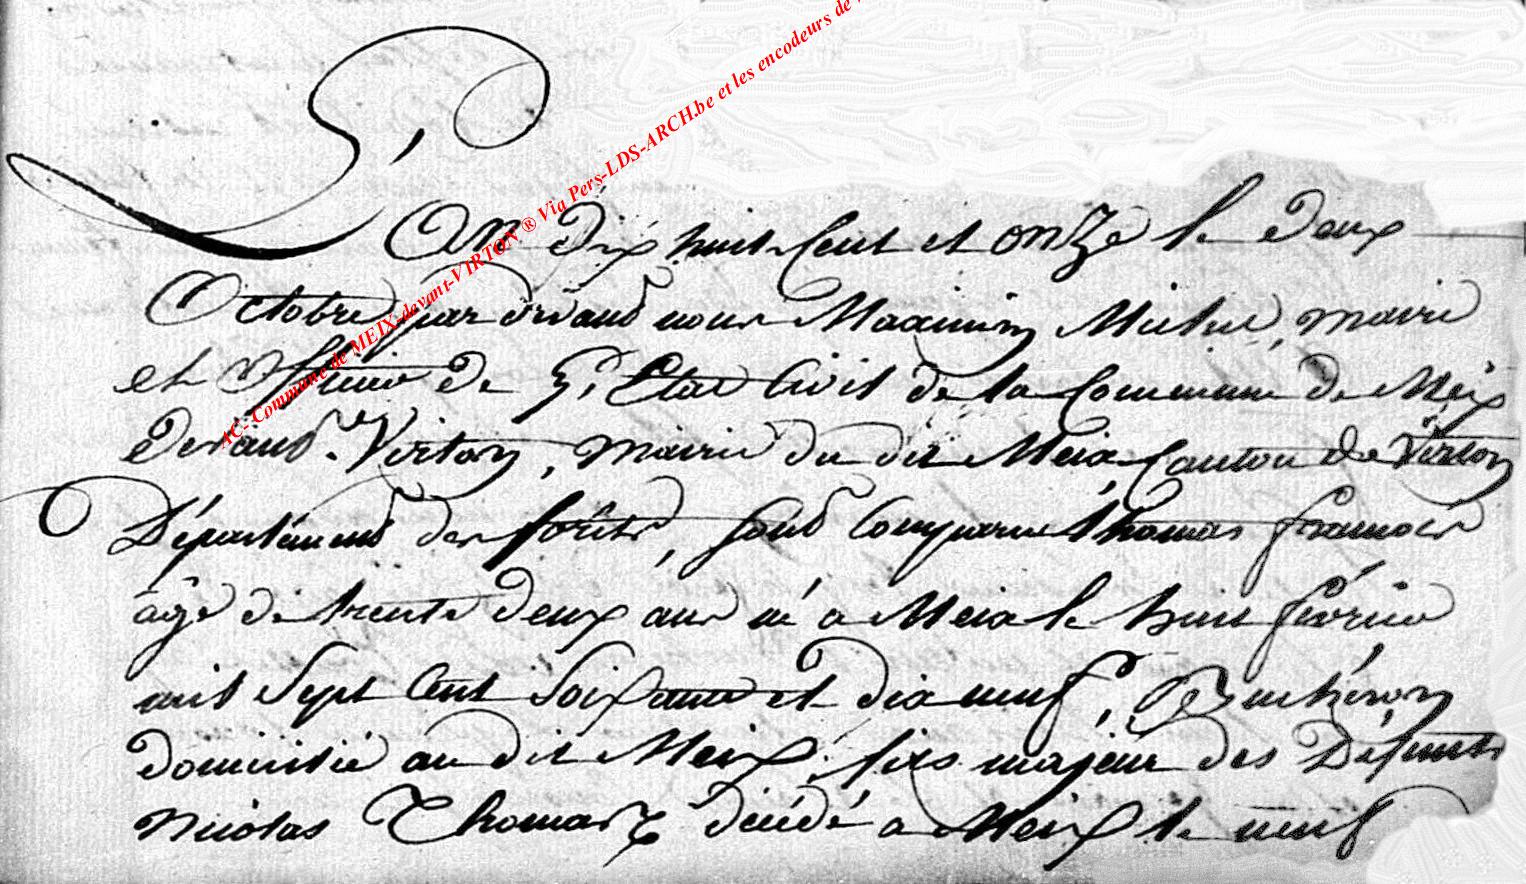 AC- Commune de MEIX-devant-VIRTON ® Via Pers-LDS-ARCH.be et les encodeurs de
L'An dix huit Cent et onze le deux
Octobre par devand nous Maximin Michel, maire
et officier de L'Etat Civil de la Commune de Meix
devand-Virton, mairie du dit Meix Canton de Virton
Département des forêts, sont Comparu thomas francois
âgé de trente deux ans né a Meix le huit février
mil Sept Cent Soixante et dix neuf, Bucheron
domicilié au dit Meix, fils majeur des Défunts
Nicolas Thomas décédé a Meix le neuf